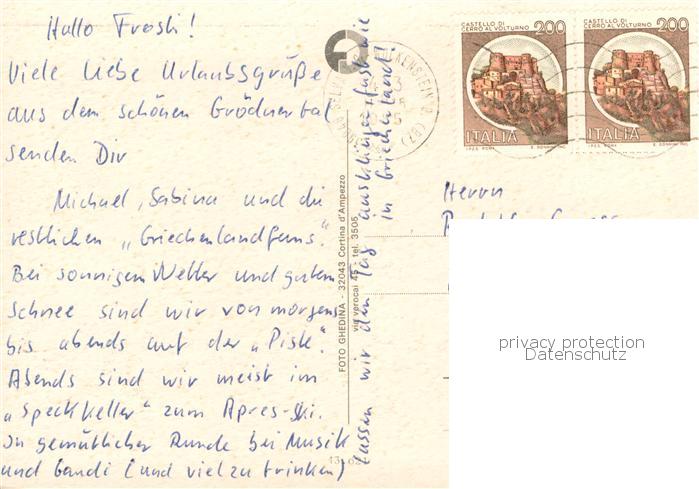 Hallo Froschi!
Viele liebe Urlaubsgrüße
aus dem schönen Grödnertal
senden Dir
Michael, Sabina und die
restlichen „Griechenlandfans".
Bei sonnigem Wetter und gutem
Schnee sind wir von morgens
bis abends auf der „Piste".
Abends sind wir meist im
„Speckkeller" zum Apres-Ski.
In gemütlicher Runde bei Musik
und Gaudi (und viel zu trinken)
lassen wir den Tag ausklingen (fast wie
in Griechenland!
FOTO GHEDINA - 32043 Cortina d'Ampezzo
via vprocai 45 - tel. 3505
CASTELLO DI
CERRO AL VOLTURNO
200
ITALIA
CASTELLO DI
CERRO AL VOLTURNO
200
ITALIA
Herrn
privacy protection
Datenschutz